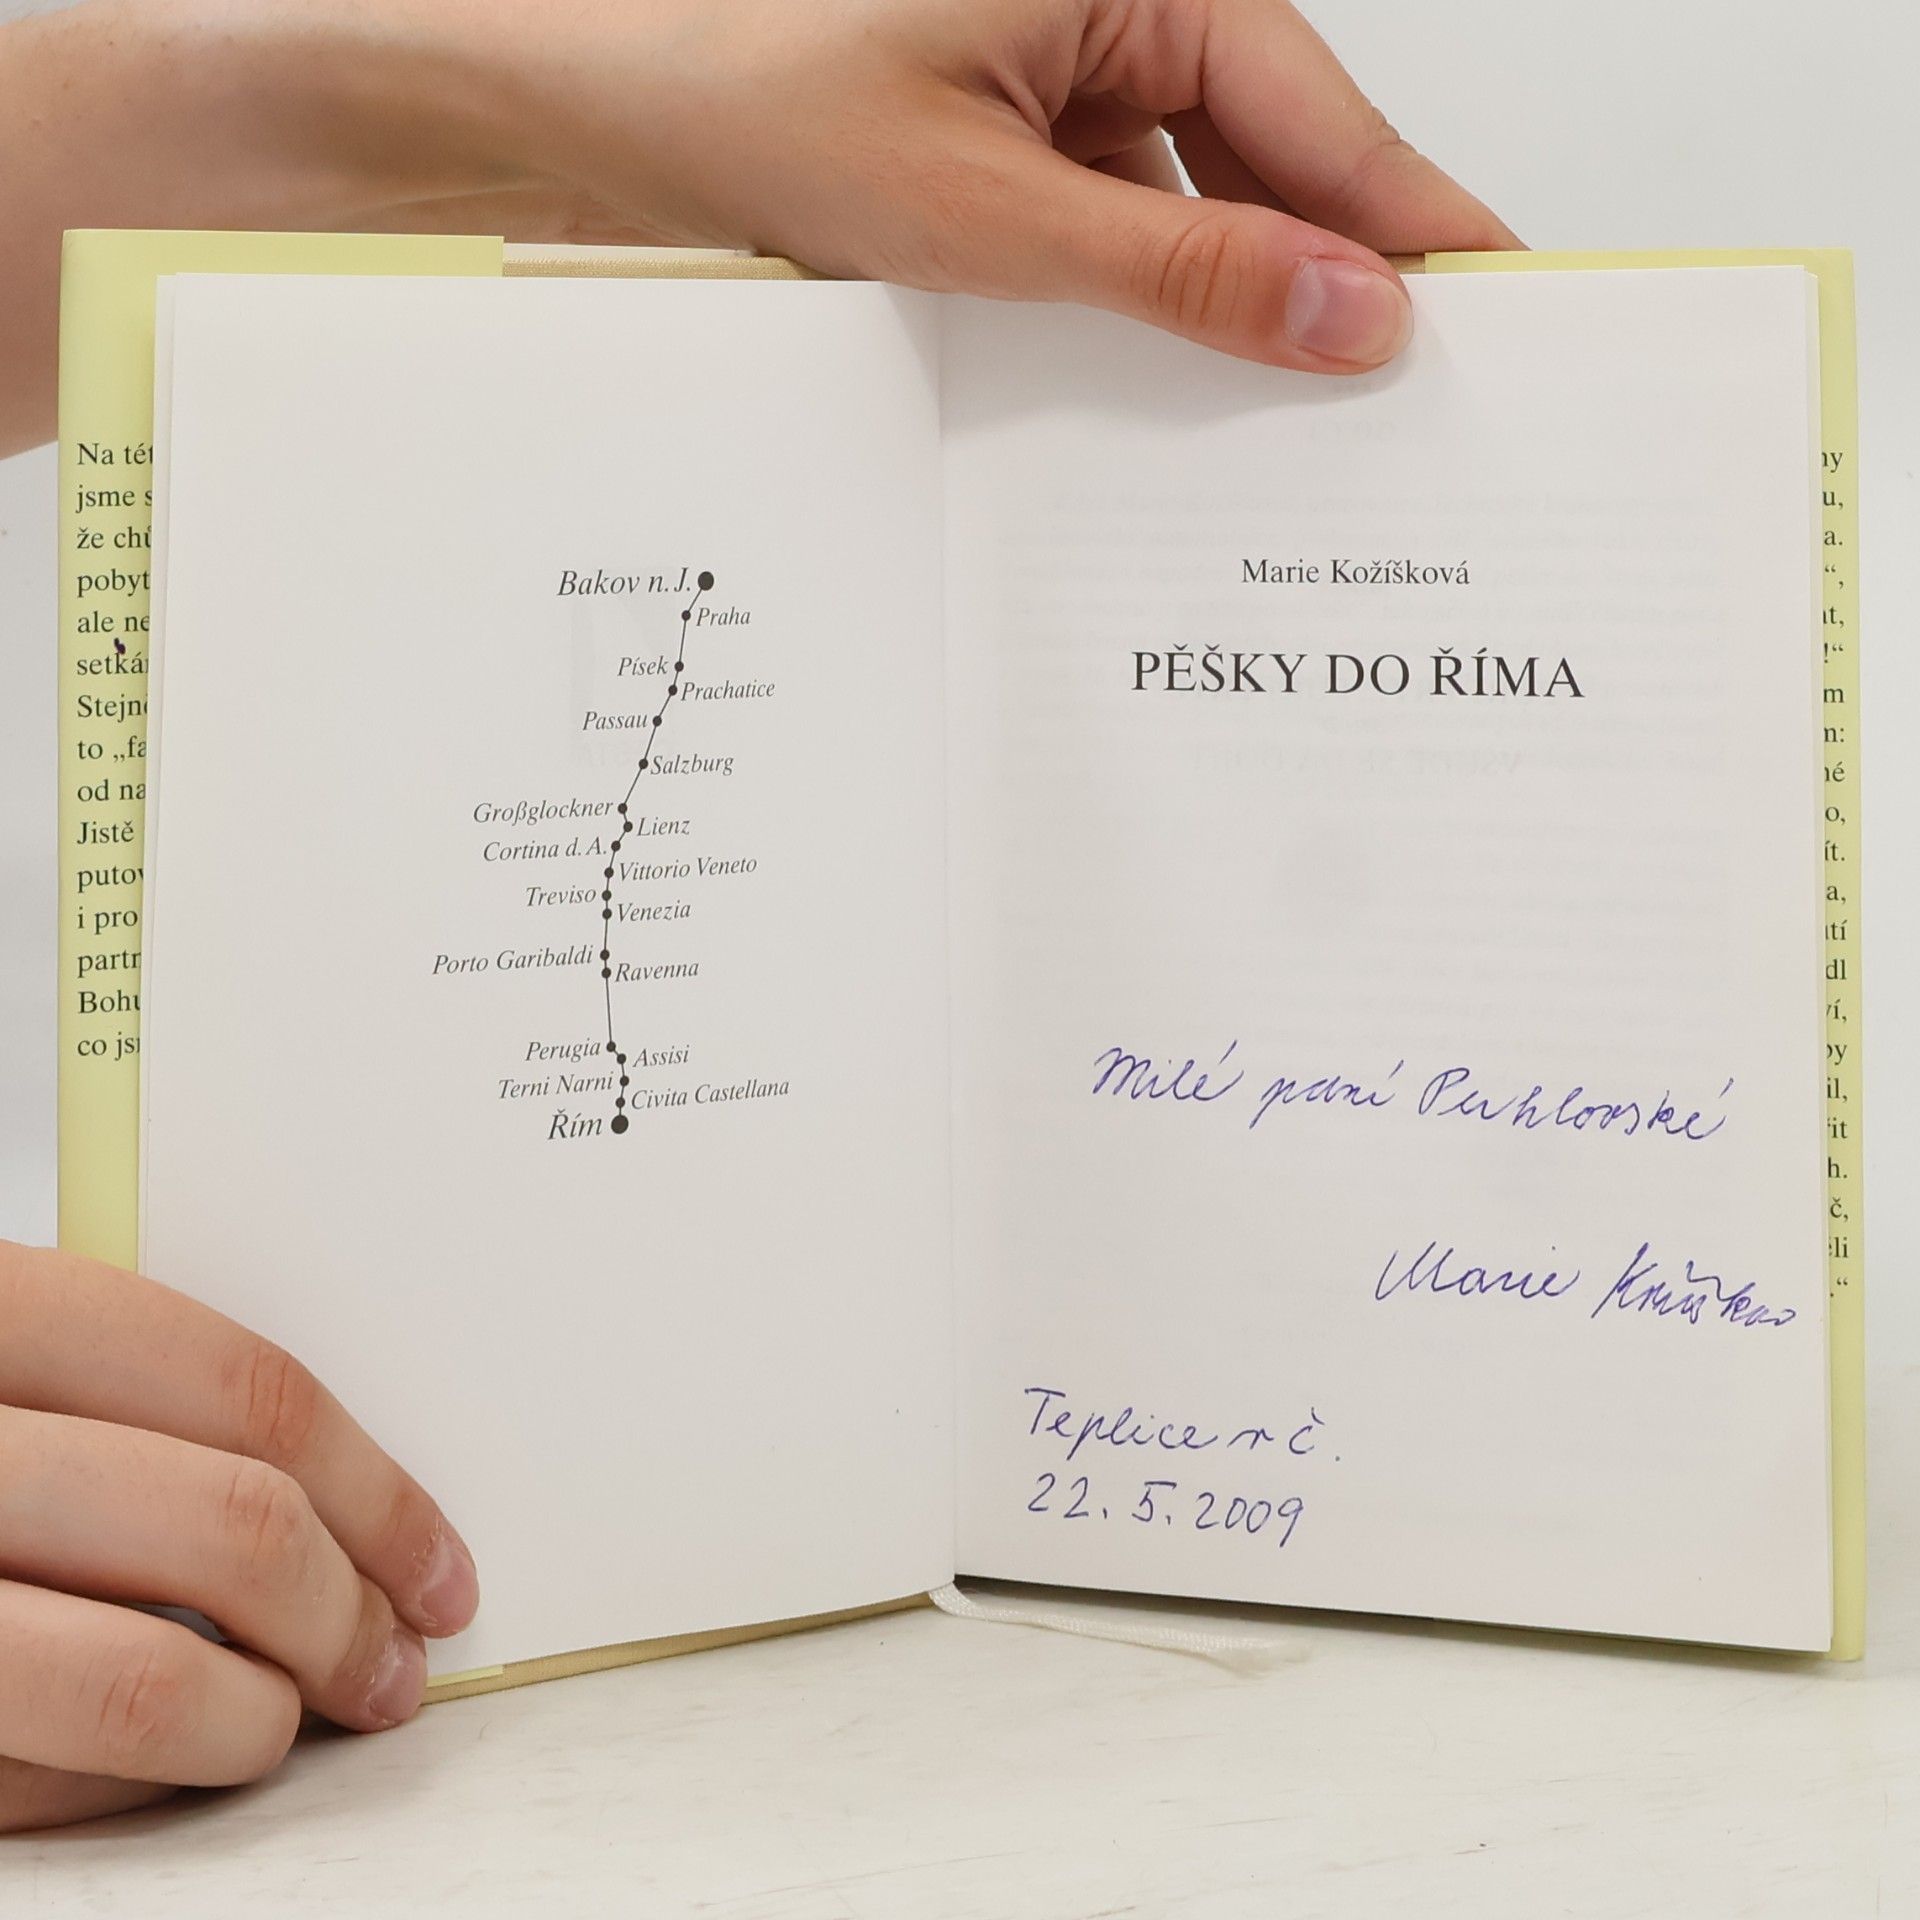 Na tét
jsme s
že chů
pobyt
ale ne
setkár
Stejně
to „fa
od na
Jistě
putov
i pro
partr
Bohu
co jsr
Bakov n. J.
Praha
Písek
Prachatice
Passau
Salzburg
Großglockner
Lienz
Cortina d. A.
Vittorio Veneto
Treviso
Venezia
Porto Garibaldi
Ravenna
Perugia
Assisi
Terni Narni
Civita Castellana
Řím
Marie Kožíšková
PĚŠKY DO ŘÍMA
Milé paní
Marie
Teplice v č.
22. 5. 2009
ny
u,
a.
“,
at,
!“
m
n:
né
o,
ít.
a,
utí
dl
ví,
by
il,
řit
h.
č,
ěli
.“